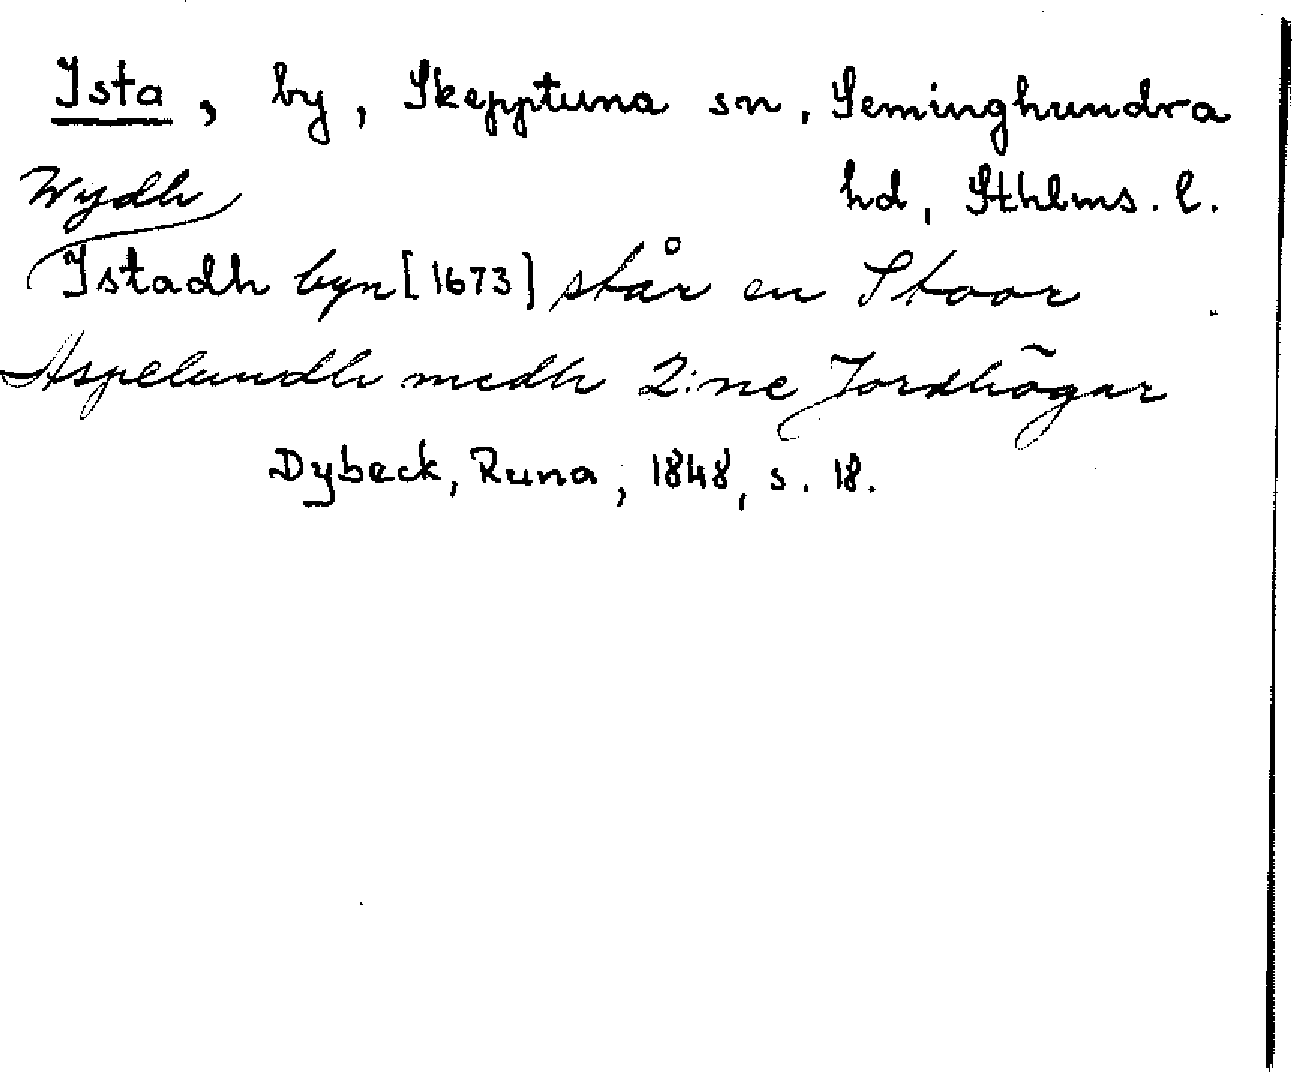 Ista, by, Skepptuna sn, Seminghundra
hd, Sthlms. l.
Wydh
Istadh byn [1673] står en Stoor
Aspelundh medh 2:ne Jordhõgar
Dybeck, Runa, 1848, s. 18.